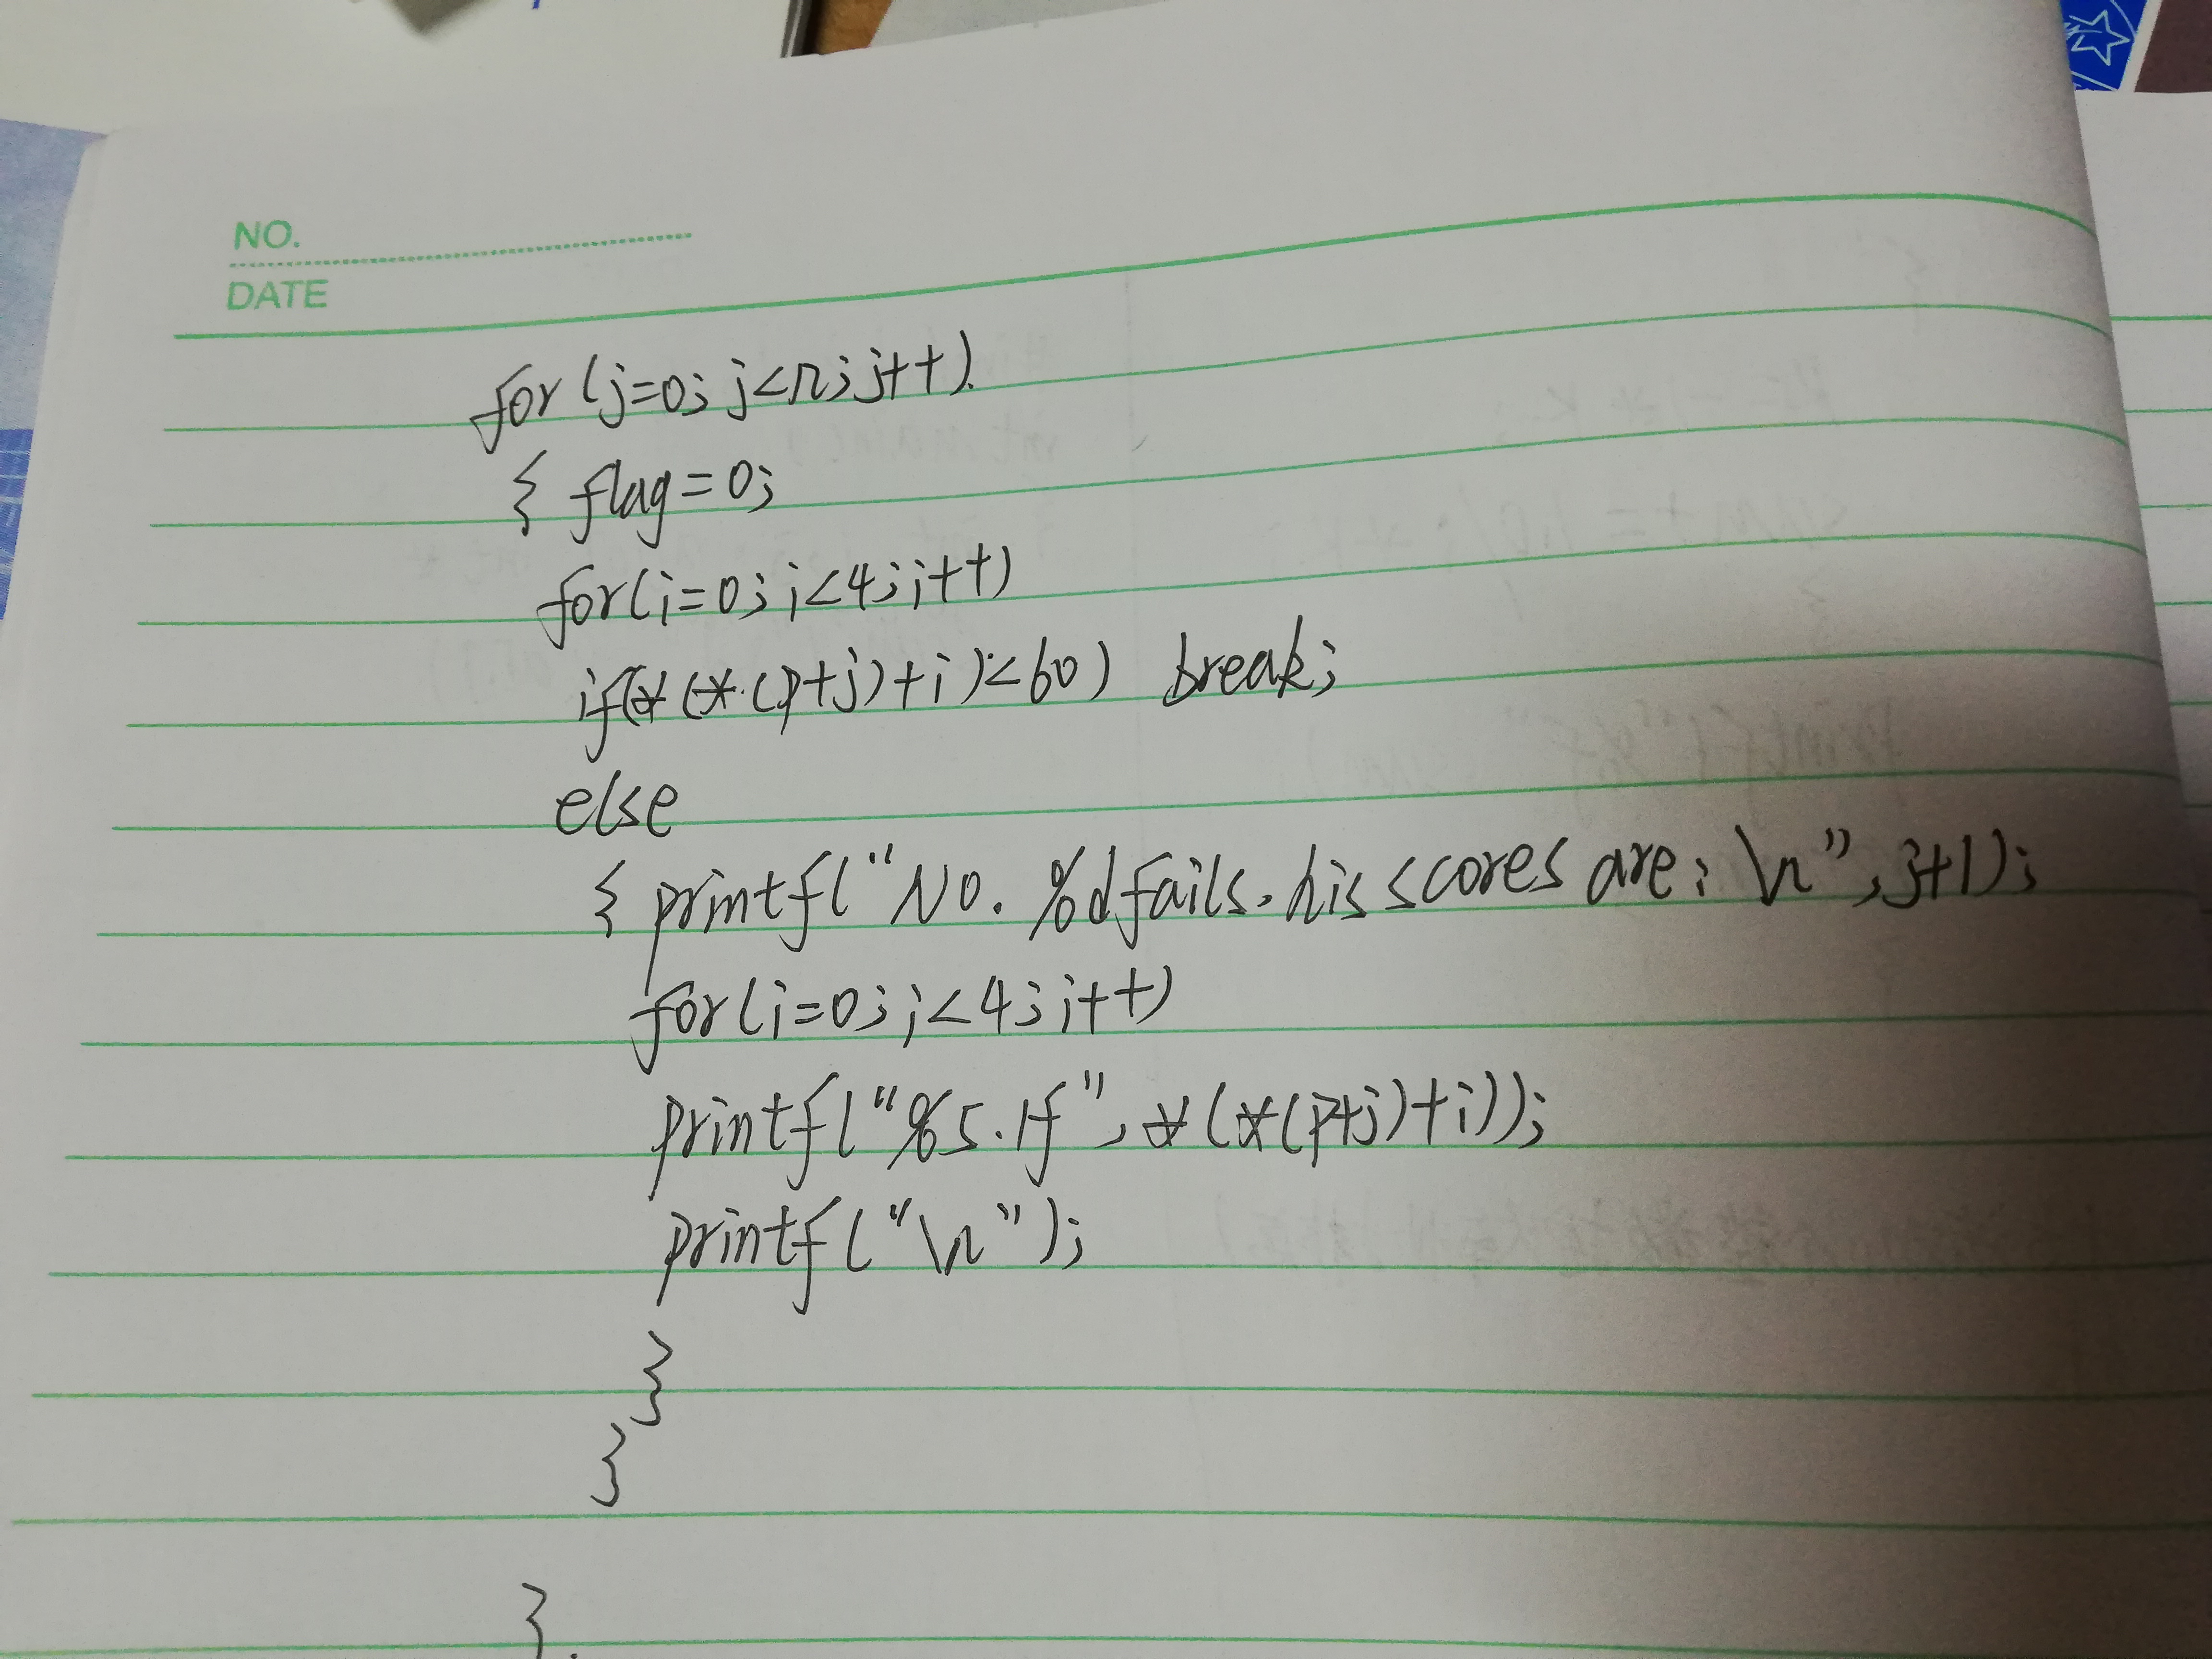 NO.
DATE
for(j=0;j<n;j++).
{ flag=0;
for(i=0;i<4;i++)
if(*(*.(p+j)+i)<60) break;
else
{ printf("No. %d fails. his scores are: \n", j+1);
for(i=0;i<4;i++)
printf("%5.1f", *(*(p+j)+i));
printf("\n");
}
}
}.